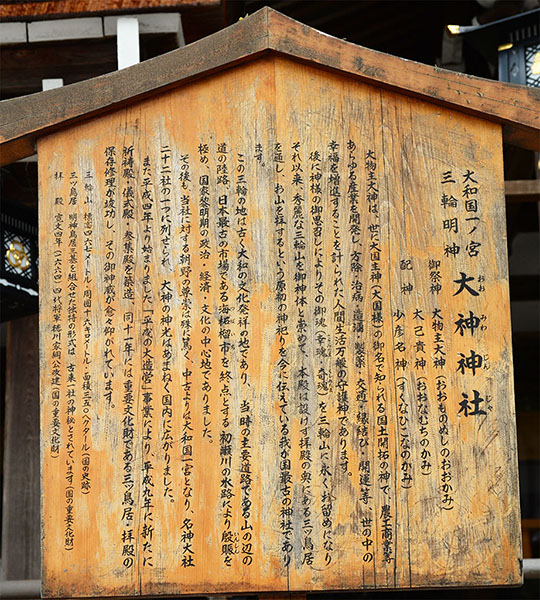 大和国一ノ宮
三輪明神
大神神社
おおみわじんじゃ
御祭神 大物主大神(おおものぬしのおおかみ)
配神 大己貴神(おおなむちのかみ)
少彦名神(すくなひこなのかみ)
大物主大神は、世に大国主神(大国様)の御名で知られる国土開拓の神で、農工商業等
あらゆる産業を開発し、方除・治病・造酒・製薬・交通・縁結び・開運等、世の中の
幸福を増進することを計られた人間生活万般の守護神であります。
後に神様の御思召しによりその御魂(幸魂、奇魂)を三輪山に永くお留めになり
それ以来、秀麗な三輪山を御神体と崇めて、本殿は設けず拝殿の奥にある三ツ鳥居
を通し、お山を拝するという原初の神祀りを今に伝えている我が国最古の神社であり
ます。
この三輪の地は古く大和の文化発祥の地であり、当時の主要道路である山の辺の
道の陸路、日本最古の市場である海柘榴市を終点とする初瀬川の水路により殷賑を
極め、国家黎明期の政治・経済・文化の中心地でありました。
その後も、当社に対する朝野の尊崇は殊に篤く、中古よりは大和国一宮となり、名神大社
二十二社の一つに列せられ、大神の神光はあまねく国内に広がりました。
また平成四年より始まりました「平成の大造営」事業により、平成九年に新たに
祈祷殿、儀式殿、参集殿を築造、同十一年には重要文化財である三ツ鳥居・拝殿の
保存修理が竣功し、その御神威が愈々仰がれています。
三輪山 標高四六七メートル・周囲十六キロメートル・面積三五〇ヘクタール(国の史跡)
三ツ鳥居 明神鳥居三基を組合せた独特の形式は 古来一社の神秘とされています(国の重要文化財)
拝殿 寛文四年(一六六四)四代将軍徳川家綱公改建(国の重要文化財)